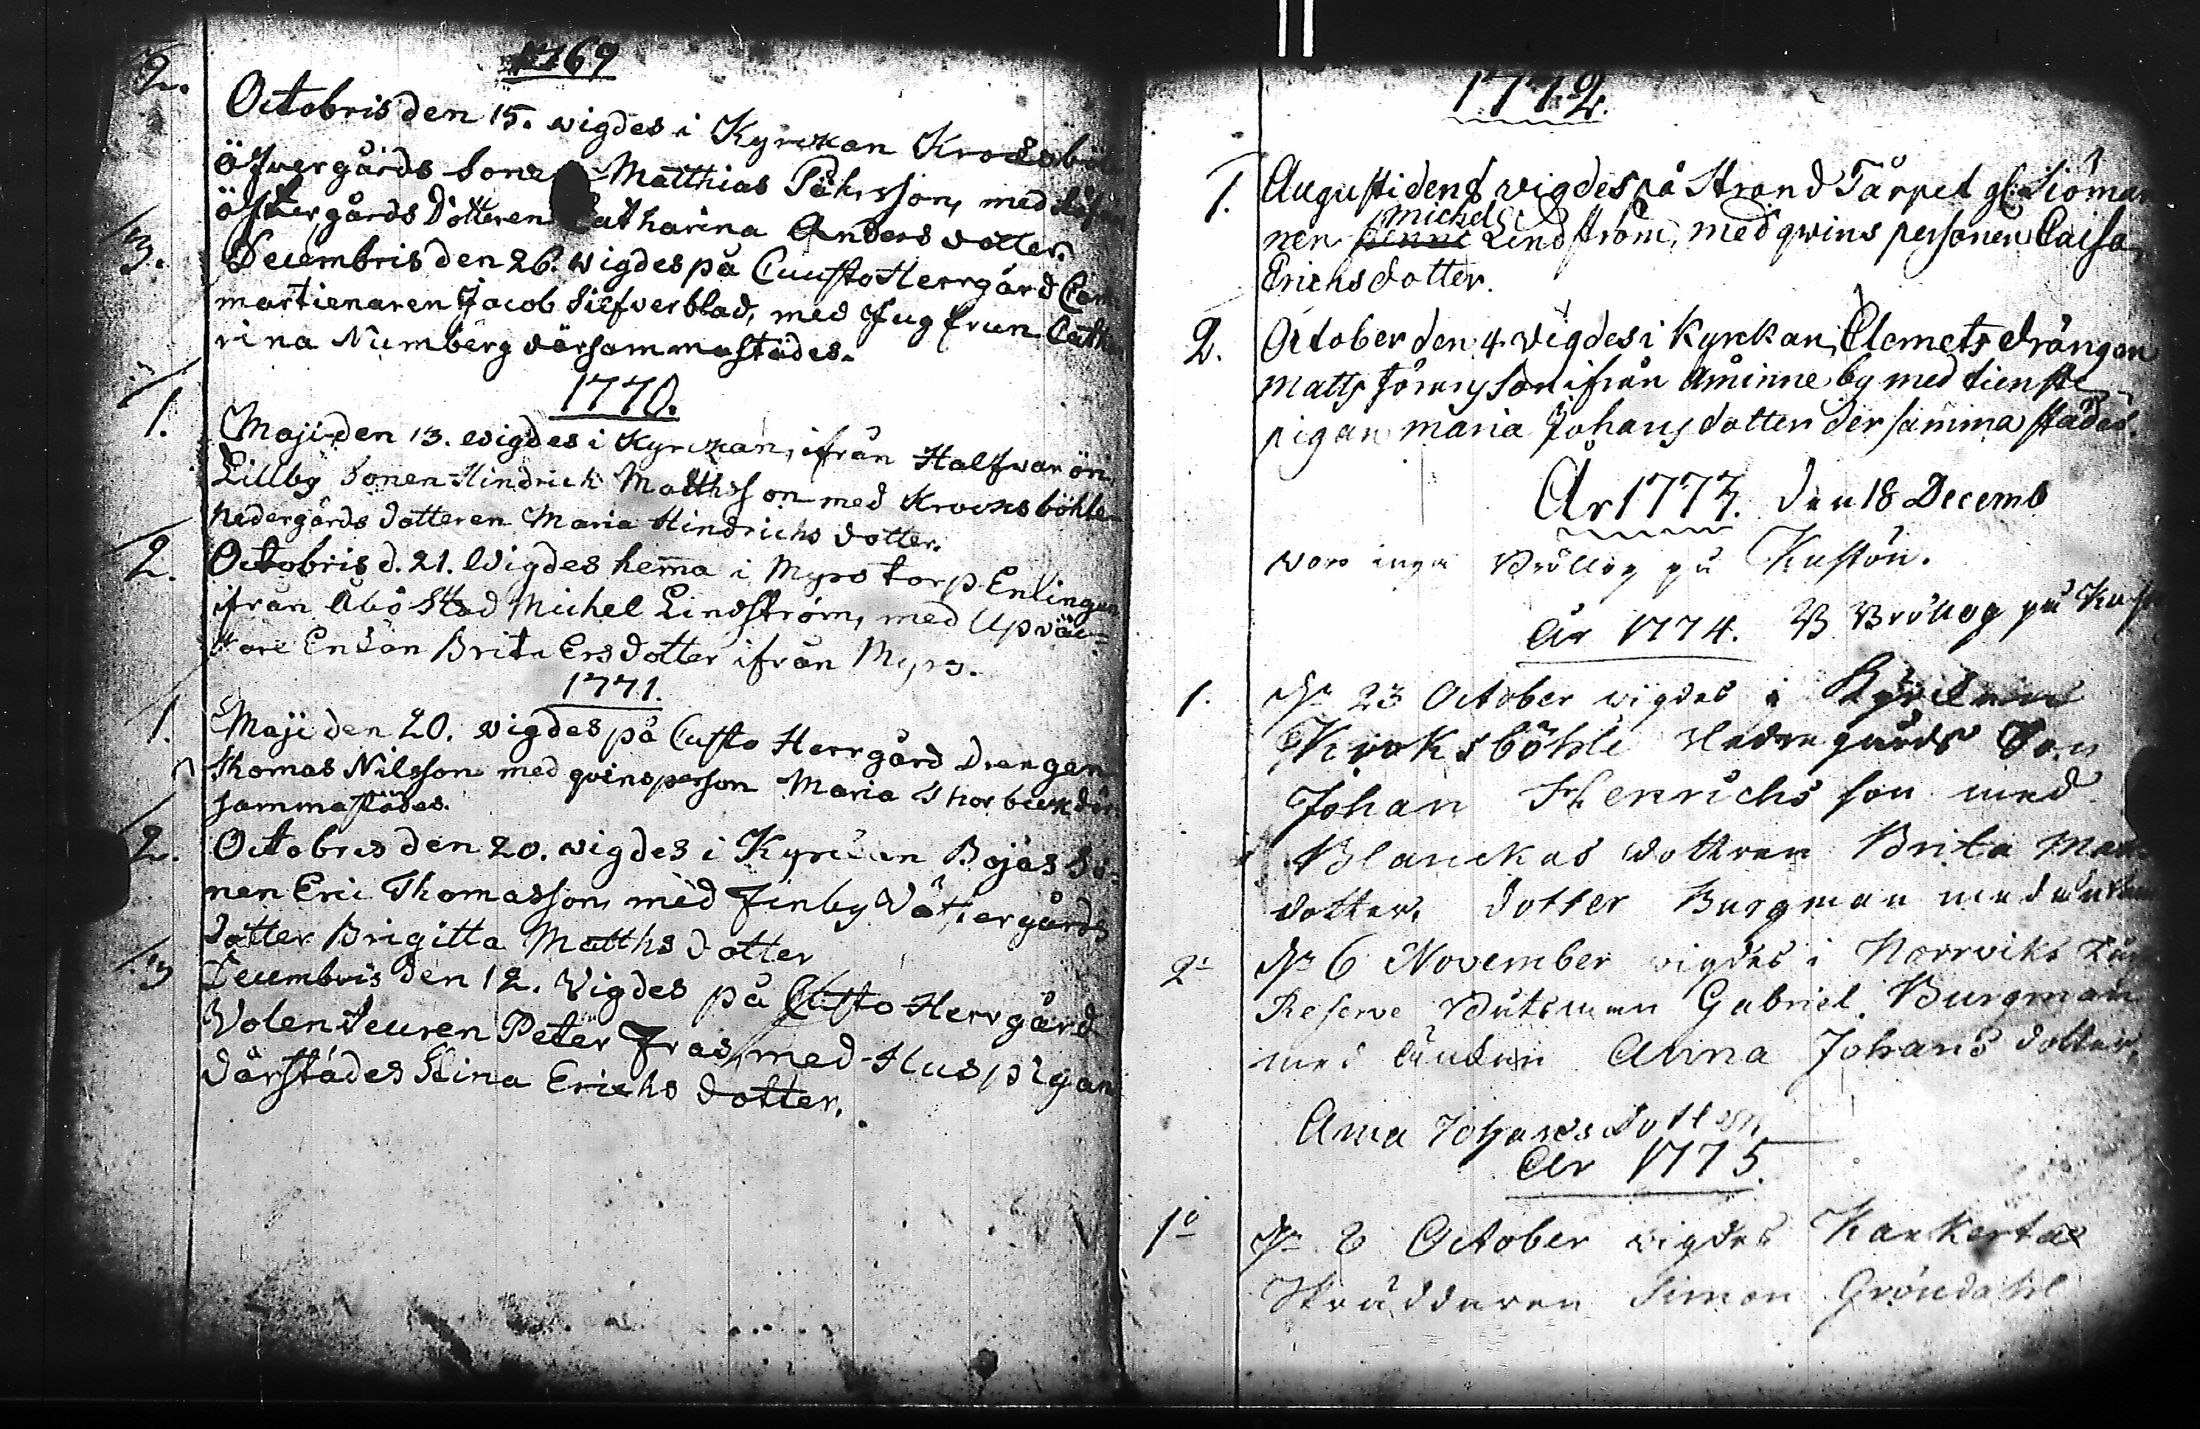 1769
2. Octobris den 15. wigdes i Kyrckan
öfvergårds Sonen Matthias Påhrsson, med
östergårds Dotteren Catharina Anders dotter.
3. Decembris den 26. wigdes på Cuusto Herrgård
martienaren Jacob Silfverblad, med Jugfrun
rina Numberg därsammastädes.
1770.
1. Maji den 13. wigdes i Kyrckan, ifrån Halfvar ön
Lillby Sonen Hindrich Matthsson med Krocksböhle
nedergårds dotteren Maria Hindrichs dotter.
2. Octobris d. 21. Wigdes hema i Myrs torp Enlingen
ifrån Åbo Stad Michel Lindström, med
Enkan Brita Ersdotter ifrån Myrs.
1771.
1. Maji den 20. wigdes på Custo Herrgård Drengen
Thomas Nilsson med qvinsperson Maria
sammastädes.
2. Octobris den 20. wigdes i Kyrckan Bojas So-
nen Eric Thomasson, med Finby
dotter Brigitta Matths dotter
3 Decembris den 12. Wigdes på Custo Herrgård
Volenteuren Peter Fras, med Huspigan
därstädes Stina Erichs dotter.
1772.
1. Augusti den 8 wigdes på Strand Tårpet gl. Siöman
Michel
nen Lindström, med qwins personen Caisa
Erichsdotter.
2. October den 4 wigdes i Kyrckan, Clemets drängen
Matts Jöransson ifrån Åminne by med tienste
pigan Maria Johans dotter der samma städes.
År 1773. den 18 Decemb
woro inga Bröllop på Kustön.
År 1774. Bröllop på
1. Dn 23 October wigdes i Kyrckan
Kroksböhle Nedregårds Son
Johan Henrichs son med
Blanckas dottren Brita
dotter. dotter Burgman med
2: Dn 6 November wigdes i Norrviks
Reserve Båtsman Gabriel Burgman
med Änkan Anna Johans dotter,
Anna Johansdotter
År 1775.
1o Dn 8 October wigdes Kankerta
Skräddaren Simon Gröndahl